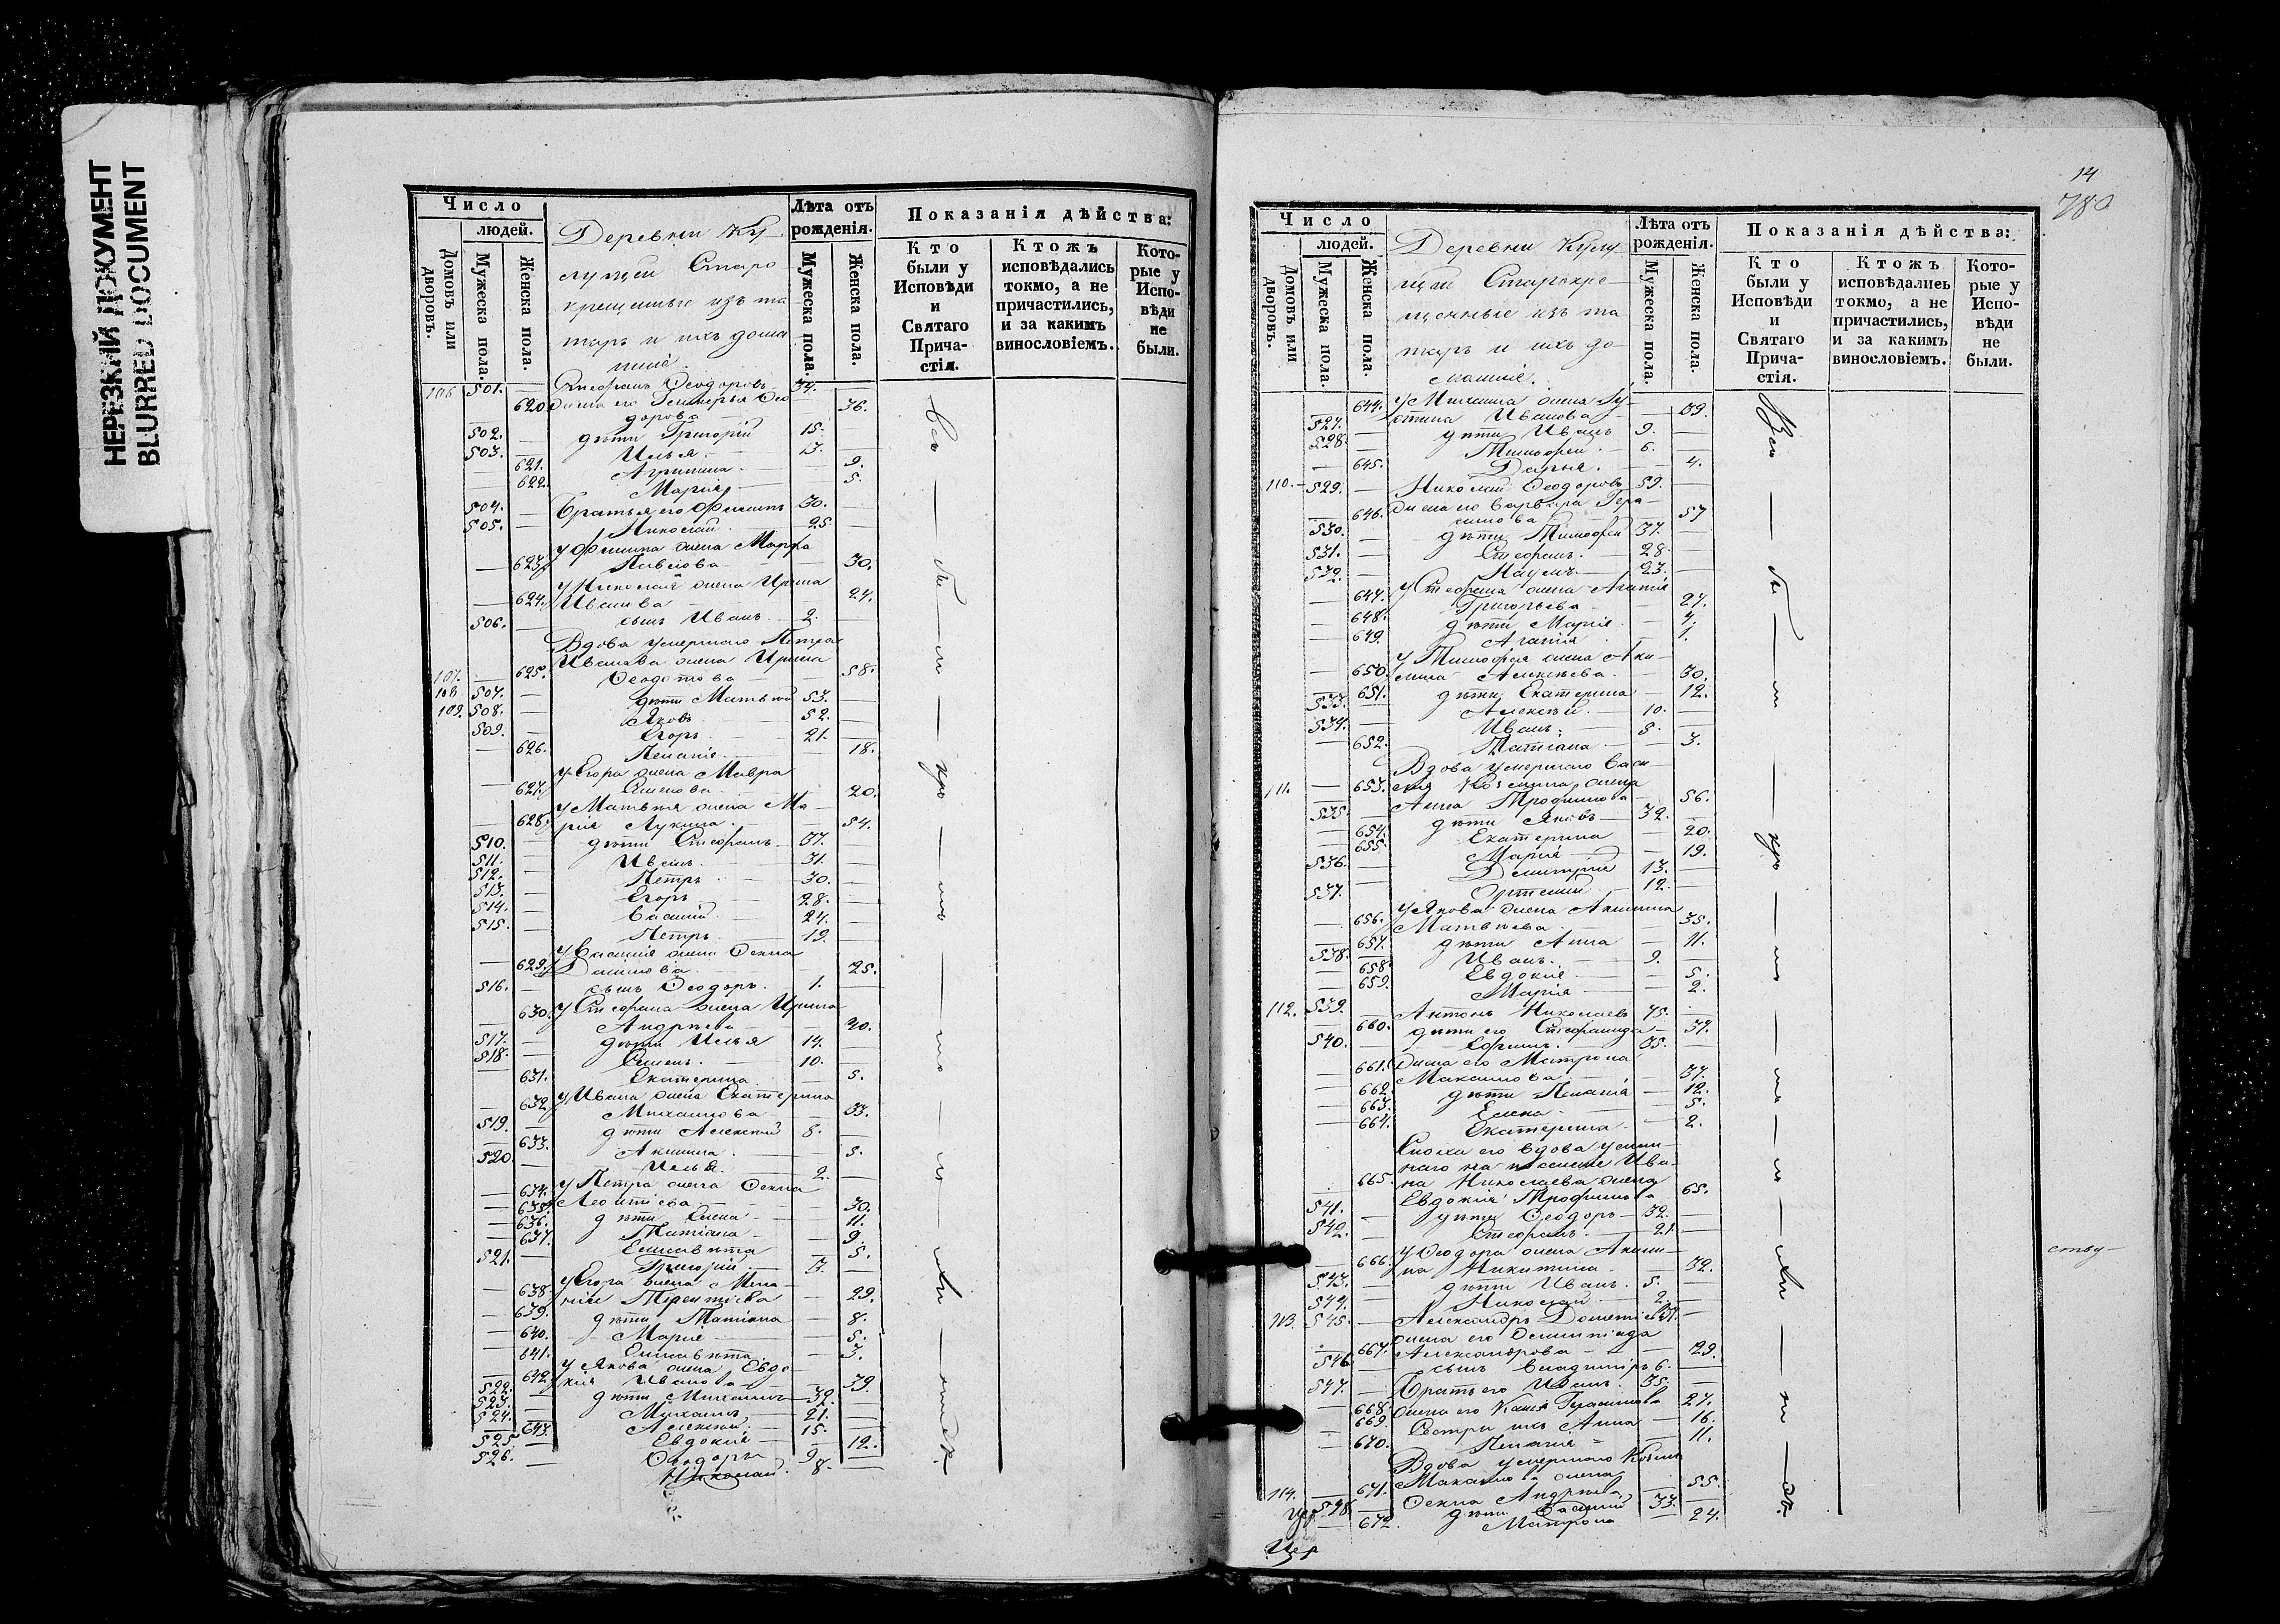 НЕРЕЗКИЙ ДОКУМЕНТ
BLURRED DOCUMENT
Число
людей.
Домовъ или дворовъ.
Мужеска пола.
Женска пола.
Деревни Ку
лущи Старо
крещеные изъ та
таръ и ихъ дома
шніе.
Лѣта отъ рожденія.
Мужеска пола.
Женска пола.
Показанія дѣйства:
Кто были у Исповѣди и Святаго Причастія.
Ктожъ исповѣдались токмо, а не причастились, и за какимъ винословіемъ.
Которые у Исповѣди не были.
106 501. Стефанъ Ѳеодоровъ 34.
620 жена его Гликерья Ѳео
дорова 36.
502. дѣти Григорій 15.
503. Илья 13.
621. Агрипина 9.
622. Марія 5.
504. Братья его Филипъ 30.
505. Николай 25
У Филипа жена Марфа
623. Павлова 30.
У Николая жена Ирина
624. Иванова 24.
506. сынъ Иванъ 2.
Вдова умершаго Петра
Иванова жена Ирина
107. 625. Ѳедотова 58.
108 507. дѣти Матвѣй 53.
109. 508. Яковъ 52.
509. Егоръ 21.
626. Пелагія 18.
У Егора жена Мавра
627. Семенова 20.
У Матвѣя жена Ма-
628. рія Лукина 54.
510. дѣти Стефанъ 37.
511. Иванъ 31.
512. Петръ 30.
513. Егоръ 28.
514. Василій 24.
515. Петръ 19.
У Василія жена Ѳекла
629. Данилова 25.
516. сынъ Ѳеодоръ 1.
630. У Стефана жена Ирина
Андрѣева 40.
517. дѣти Илья 14.
518. Семенъ 10.
631. Екатерина 5.
632. У Ивана жена Екатерина
Михайлова 33.
519. дѣти Алексѣй 8.
633. Акилина 5.
520. Илья 2.
634. У Петра жена Ѳекла
Леонтіева 30.
635. дѣти Елена 11.
636. Татіана 9.
637. Елисавѣта 5.
521. Григорій 3.
У Егора жена Мела-
638. нія Терентіева 29.
639. дѣти Татіана 8.
640. Марія 5.
641. Елисавѣта 3.
У Якова жена Евдо-
642. кія Иванова 39.
522. дѣти Михаилъ 32.
523. Михаилъ 21.
524. Алексѣй 15.
643. Евдокія 12.
525. Ѳеодоръ 9
526. Николай 8.
14
780
Число
людей.
Домовъ или дворовъ.
Мужеска пола.
Женска пола.
Деревни Кулу
щи Старокре-
щенные изъ та
таръ и ихъ до-
машніе.
Лѣта отъ рожденія.
Мужеска пола.
Женска пола.
Показанія дѣйства:
Кто были у Исповѣди и Святаго Причастія.
Ктожъ исповѣдались токмо, а не причастились, и за какимъ винословіемъ.
Которые у Исповѣди не были.
644. У Михаила жена Іу-
стина Иванова 39.
527. дѣти Иванъ 9.
528. Тимофей 6.
645. Дарья 4.
110. 529. Николай Ѳеодоровъ 59.
646. жена его Варвара Гера-
симова 57
530. дѣти Тимофей 37.
531. Стефанъ 28.
532. Наумъ 23.
У Стефана жена Агапія
647. Григорьева 27.
648. дѣти Марія 4.
649. Агапія 1.
У Тимофея жена Аки-
650. лина Алексѣева 30.
651. дѣти Екатерина 12.
533. Алексѣй 10.
534. Иванъ 8.
652. Татіана 3.
Вдова умершаго Васи-
111. 653. лія Козмина жена
Анна Трофимова 56.
535. дѣти Яковъ 32.
654. Екатерина 20.
655. Марія 19.
536. Димитрій 13.
537. Артемій 12.
У Якова жена Акилина
656. Матвѣева 35.
657. дѣти Анна 11.
538. Иванъ 9.
658. Евдокія 5.
659. Марія 2.
112. 539. Антонъ Николаевъ 75.
660. дѣти его Стефанида 37.
540. Ефимъ 35.
661. жена его Матрона
Макамова 37.
662. дѣти Пелагія 12.
663. Елена 5.
664. Екатерина 2.
Сноха его вдова
Ива-
665. на Николаева жена
Евдокія Трофимова 65.
541. дѣти Ѳеодоръ 32.
542. Стефанъ 21.
У Ѳеодора жена Акили-
666. на Никитина 32.
543. дѣти Иванъ 5.
544. Николай 2.
113. 545. Александръ Дометіевъ 37.
жена его Олимпіада
667. Александрова 29.
546. сынъ Владиміръ 6.
547. Братъ его Иванъ 35.
668. жена его Ксенія Герасимова 27.
669. Сестры ихъ Анна 16.
670. Пелагія 11.
Вдова умершаго Козьмы
671. Макамова жена
114. Ѳекла Андрѣева 55.
548. дѣти Василій 33.
672 Матрона 24.
Цер